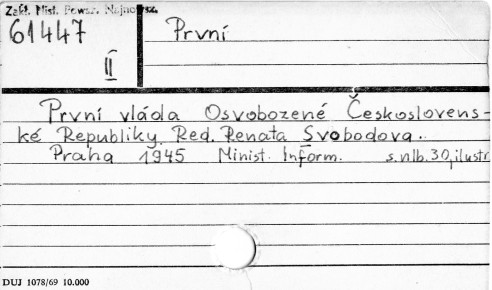 Zakł. Hist. Powsz. Najnowsz.
61447
První
II
První vláda Osvobozené Českosloven-
ké Republiky. Red. Renata Svobodova.
Praha 1945 Minist. Inform. s.nlb.30, ilustr
DUJ 1078/69 10.000